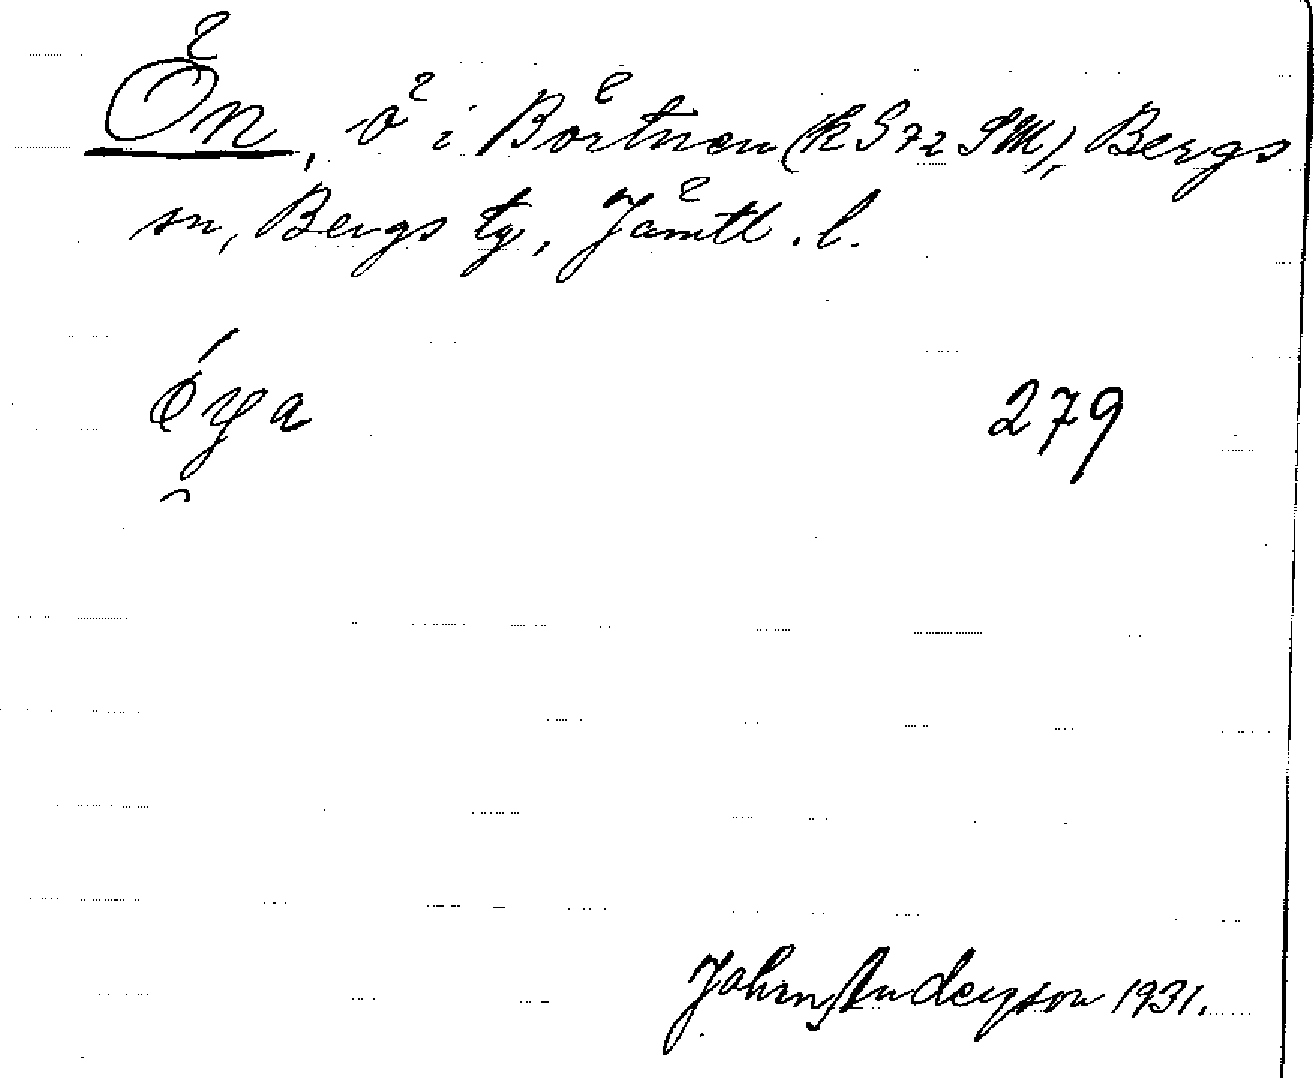 Ön, ö i Börtnen (k S72 SM), Bergs
sn, Bergs tg, Jämtl. l.
óya 279
John Anderson 1931.